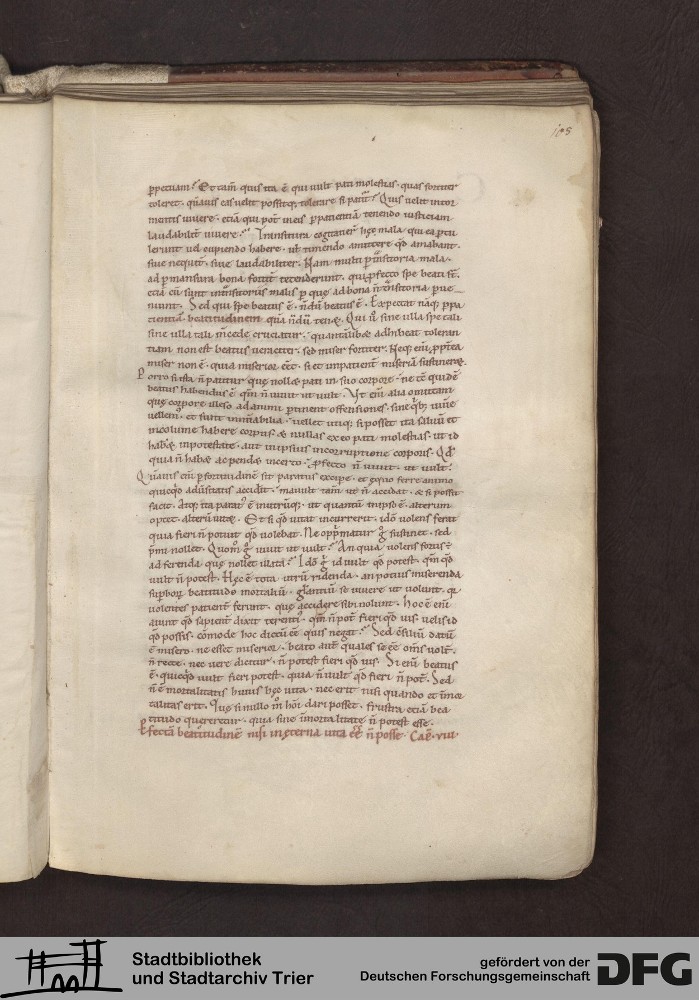 105
ꝑpetuam? Et tam̃ quis ita ẽ qui uult pati molestias · quas fortiter
toleret · quãuis eas uelit possitq; tolerare si patit̃? Quis uelit in tor
mentis uiuere · etiã qui pot̃ in eis ꝑ patientiã tenendo iusticiam
laudabilit̃ uiuere? Transitura cogitauer̃ hęc mala · qui ea ꝑtu
lerunt uel cupiendo habere · ul̃ timendo amittere qd̃ amabant ·
siue nequit̃ · siue laudabiliter · Nam multi ꝑ t̃nsitoria mala ·
ad ꝑmansura bona fortit̃ tetenderunt · qui ꝓfecto spe beati st̃ ·
etiã cũ sunt in t̃nsitoriis malis ꝑ quę ad bona ñ t̃nsitoria ꝑue
niunt · Sed qui spe beatus ẽ · ñdũ beatus ẽ · Expectat nãq; ꝑ pa
cientiã beatitudinem quã ñdũ tenet · Qui ũ sine ulla spe tali
sine ulla tali m̃cede cruciatur · quantãlibet adhibeat toleran
tiam non est beatus ueraciter · sed miser fortiter · Neq; eni ꝓpt̃ea
miser non ẽ · quia miserior eẽt · si et impatient̃ miseriã sustineret ·
Porro si ista ñ patitur quę nollet pati in suo corpore · ne tẽ quidẽ
beatus habendus ẽ · qm̃ ñ uiuit ut uult · Vt eni alia omittam
quę corpore illeso ad animi ꝑtinent offensiones · sine qb; uiũe
uellem̃ · et sunt innũabilia · uellet utiq; si posset ita saluũ et
incolume habere corpus et nullas ex eo pati molestias · ut id
habet in potestate · aut in ipsius incorruptione corporis · Qd̃
quia ñ habet ac pendet incerto · ꝓfecto ñ uiuit · ut uult ·
Quãuis eni ꝑ fortitudinẽ sit paratus excipe · et ęquo ferre animo
quicqd adũsitatis accidit · mauult tam̃ ut ñ accidat · et si possit
facit · Atq; ita parat̃ ẽ in utrũq; · ut quantũ in ipso ẽ · alterum
optet · alterũ uitet · Et si qd̃ uitat incurrerit · ido volens ferat
quia fieri ñ potuit qd̃ volebat · Ne opp̃matur g̃ sustinet · sed
p̃mi nollet · Quom̃ g̃ uiuit ut uult? An quia volens fortis ẽ
ad ferenda quę nollet illata? Ido g̃ id uult qd̃ potest · qm̃ qd̃
uult ñ potest · Hęc ẽ tota utrũ ridenda · an potius miserenda
suꝑborũ beatitudo mortaliũ · gl̃antiũ se uiuere ut uolunt · q̃
uolentes patient̃ ferunt · quę accidere sibi nolunt · Hoc ẽ eni
aiunt qd̃ sapient̃ dixit terenti · qm̃ ñ pot̃ fieri qd̃ uis · uelis id
qd̃ possis · cõmode hoc dictũ eẽ quis negat? Sed cõsiliũ datũ
ẽ misero · ne esset miserior · beato aut̃ quales se eẽ om̃s uolt̃ ·
ñ recte · nec uere dicitur · ñ potest fieri qd̃ uis · Si eni beatus
ẽ · quicqd̃ uult fieri potest · quia ñ uult qd̃ fieri ñ pot̃ · Sed
ñ ẽ mortalitatis huius hęc uita · nec erit nisi quando et imor
talitas erit · Quę si nullo m̃ hoi dari posset · frustra etiã bea
titudo quereretur · quia sine imortalitate ñ potest esse ·
Perfectã beatitudinẽ nisi in ęterna uita eẽ ñ posse Cap̃ · VIII ·
Stadtbibliothek
und Stadtarchiv Trier
gefördert von der
Deutschen Forschungsgemeinschaft
DFG